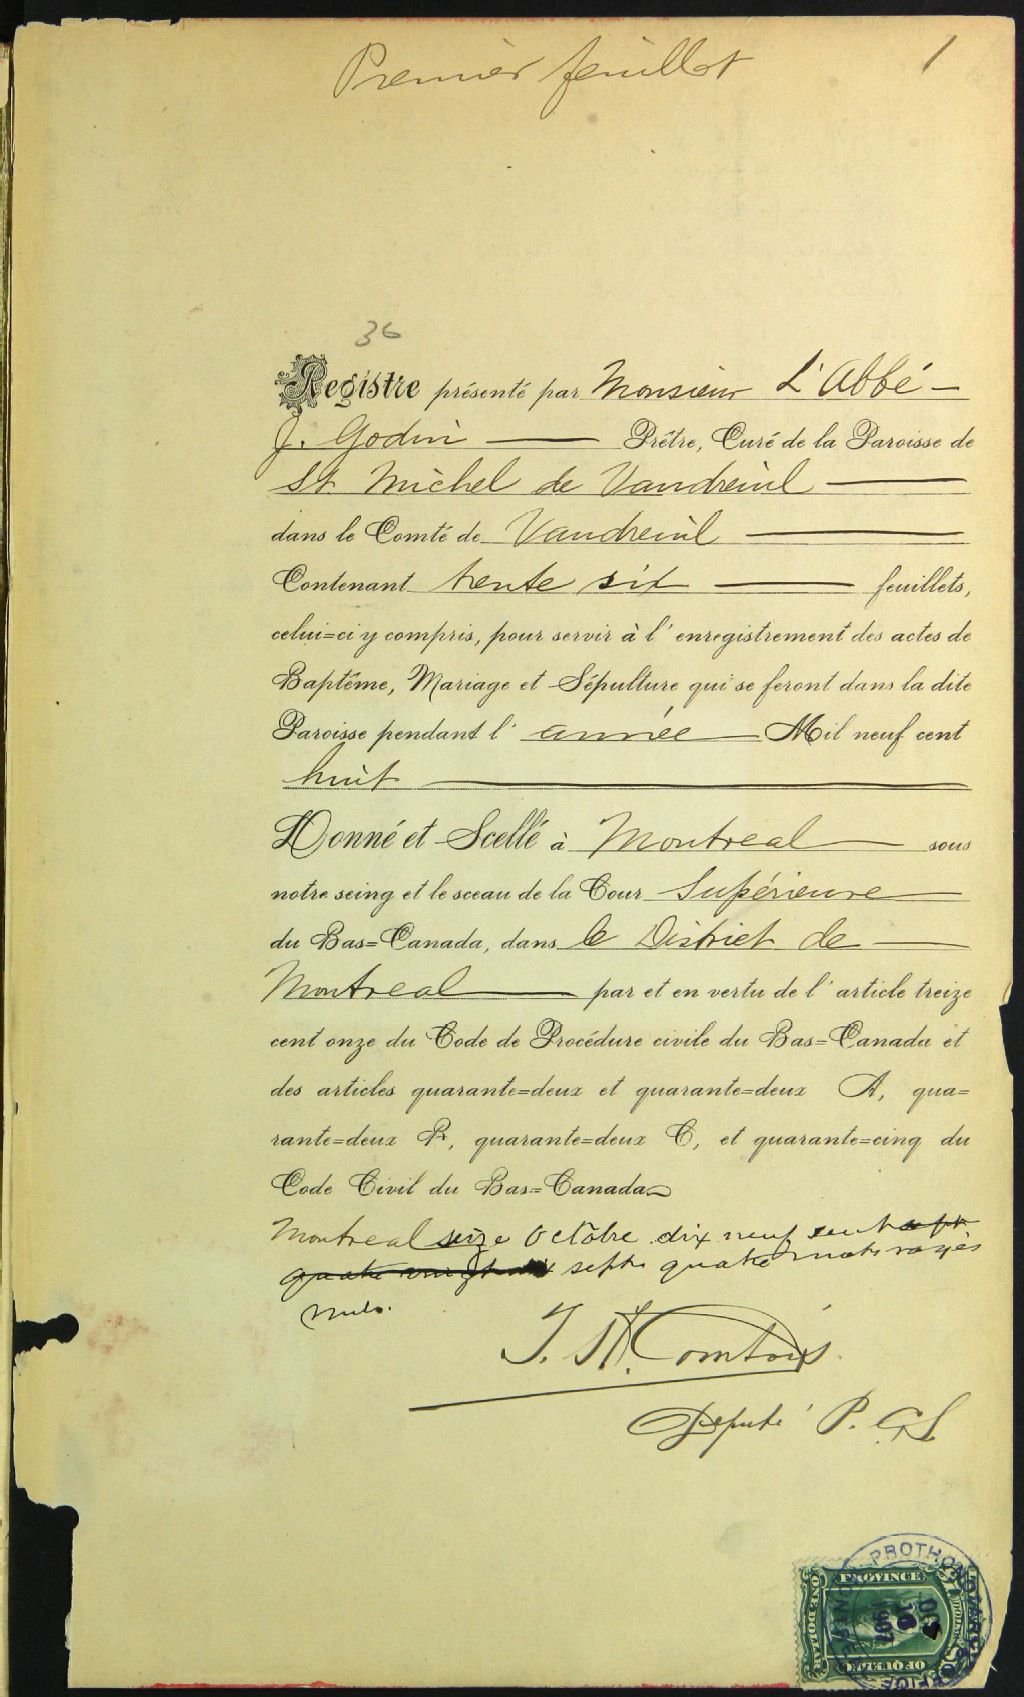 Premier feuillet 1
36
Registre présenté par Monsieur L'Abbé —
J. Godin — Prêtre, Curé de la Paroisse de
St. Michel de Vaudreuil —
dans le Comté de Vaudreuil —
Contenant trente six — feuillets,
celui=ci y compris, pour servir à l'enregistrement des actes de
Baptême, Mariage et Sépulture qui se feront dans la dite
Paroisse pendant l'année — Mil neuf cent
huit —
Donné et Scellé à Montreal — sous
notre seing et le sceau de la Cour Supérieure
du Bas=Canada, dans le District de —
Montreal — par et en vertu de l'article treize
cent onze du Code de Procédure civile du Bas=Canada et
des articles quarante=deux et quarante=deux A, qua=
rante=deux B, quarante=deux C, et quarante=cinq du
Code Civil du Bas=Canada
Montreal seize Octobre dix neuf cent
sept quatre mots rayés
nuls.
J. St. Comtois
Député P. C. S.
PROTHONOTARY'S OFFICE
PROVINCE
OCT
16
1907
ONE DOLLAR
OF QUEBEC